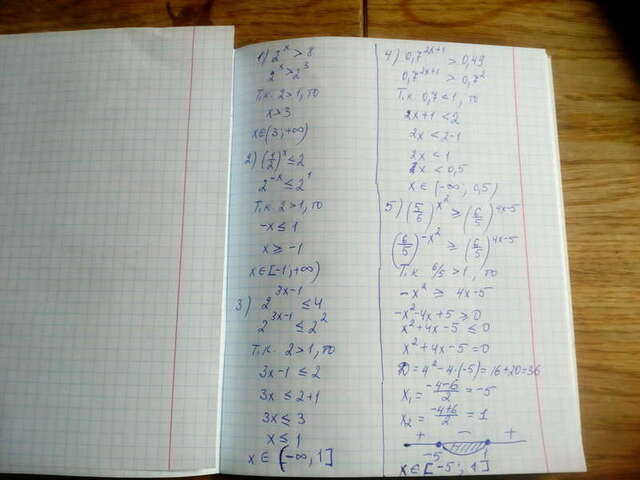 1) 2^x > 8
2^x > 2^3
Т.к. 2>1, то
x>3
x∈(3; +∞)
2) (1/2)^x ≤ 2
2^-x ≤ 2^1
Т.к. 2>1, то
-x ≤ 1
x ≥ -1
x∈[-1; +∞)
3) 2^3x-1 ≤ 4
2^3x-1 ≤ 2^2
Т.к. 2>1, то
3x-1 ≤ 2
3x ≤ 2+1
3x ≤ 3
x ≤ 1
x ∈ (-∞, 1]
4) 0,7^2x+1 > 0,49
0,7^2x+1 > 0,7^2
Т.к. 0,7<1, то
2x+1 < 2
2x < 2-1
2x < 1
x < 0,5
x ∈ (-∞; 0,5)
5) (5/6)^x^2 ≥ (6/5)^4x-5
(6/5)^-x^2 ≥ (6/5)^4x-5
Т.к. 6/5 > 1, то
-x^2 ≥ 4x-5
-x^2-4x+5 ≥ 0
x^2+4x-5 ≤ 0
x^2+4x-5=0
D=4^2-4·(-5)=16+20=36
x₁ = -4-6/2 = -5
x₂ = -4+6/2 = 1
+ - +
-5 1
x∈[-5; 1]